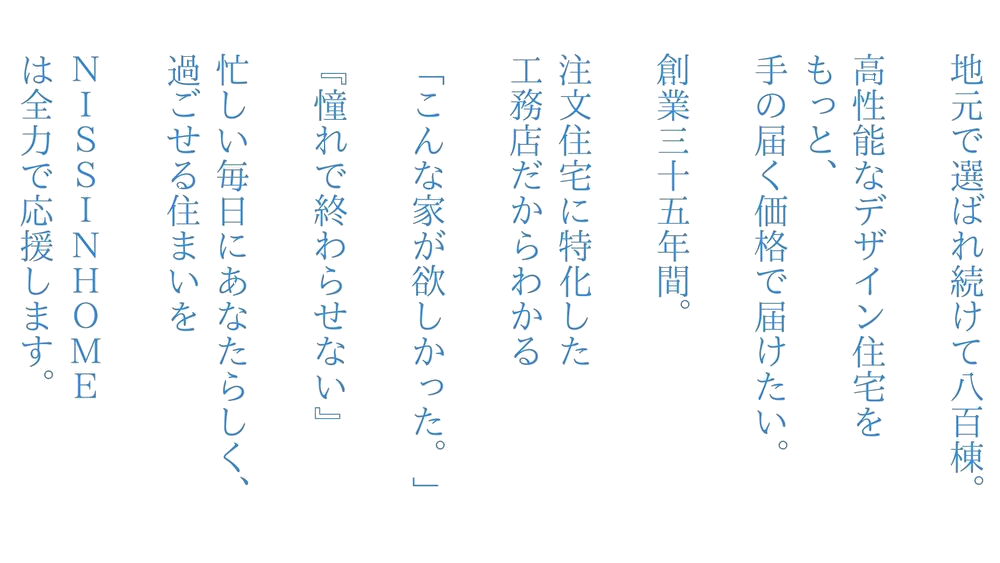 地元で選ばれ続けて八百棟。
高性能なデザイン住宅を
もっと、
手の届く価格で届けたい。
創業三十五年間。
注文住宅に特化した
工務店だからわかる
「こんな家が欲しかった。」
『憧れで終わらせない』
忙しい毎日にあなたらしく、
過ごせる住まいを
NISSINHOME
は全力で応援します。